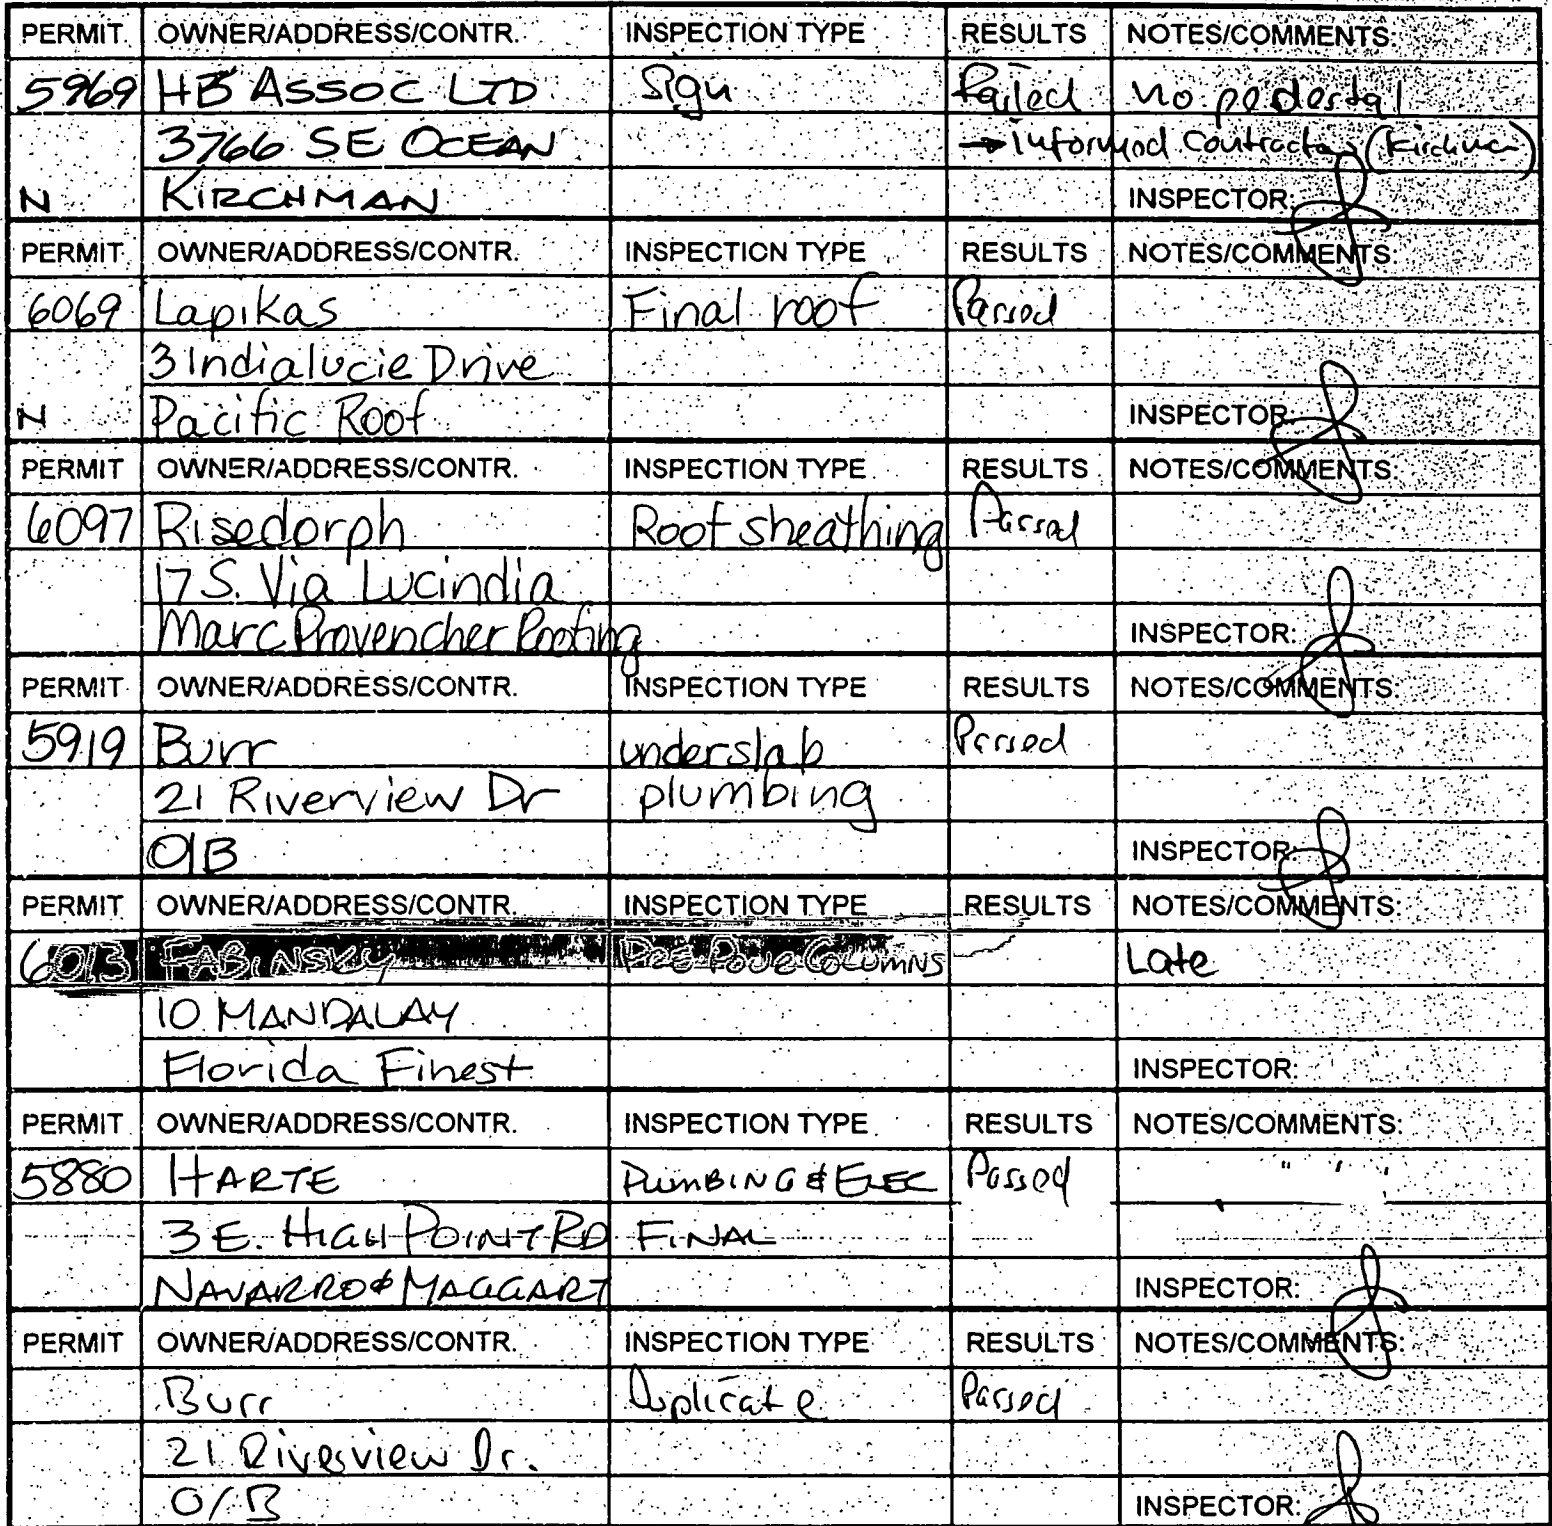 PERMIT OWNER/ADDRESS/CONTR. INSPECTION TYPE RESULTS NOTES/COMMENTS:
5969 HB ASSOC LTD Sign Failed no pedestal
3766 SE OCEAN → informed Contractor (Kirchman)
N KIRCHMAN INSPECTOR:
PERMIT OWNER/ADDRESS/CONTR. INSPECTION TYPE RESULTS NOTES/COMMENTS:
6069 Lapikas Final roof Passed
3 Indialucie Drive
N Pacific Roof INSPECTOR:
PERMIT OWNER/ADDRESS/CONTR. INSPECTION TYPE RESULTS NOTES/COMMENTS:
6097 Risedorph Roof sheathing Passed
17 S. Via Lucindia
Marc Provencher Roofing INSPECTOR:
PERMIT OWNER/ADDRESS/CONTR. INSPECTION TYPE RESULTS NOTES/COMMENTS:
5919 Burr underslab Passed
21 Riverview Dr plumbing
O/B INSPECTOR:
PERMIT OWNER/ADDRESS/CONTR. INSPECTION TYPE RESULTS NOTES/COMMENTS:
6013 FABINSKY PRE POUR COLUMNS Late
10 MANDALAY
Florida Finest INSPECTOR:
PERMIT OWNER/ADDRESS/CONTR. INSPECTION TYPE RESULTS NOTES/COMMENTS:
5880 HARTE PLUMBING & ELEC Passed
3 E. HIGH POINT RD FINAL
NAVARRO & MAGGART INSPECTOR:
PERMIT OWNER/ADDRESS/CONTR. INSPECTION TYPE RESULTS NOTES/COMMENTS:
Burr Duplicate Passed
21 Riverview Dr.
O/B INSPECTOR: